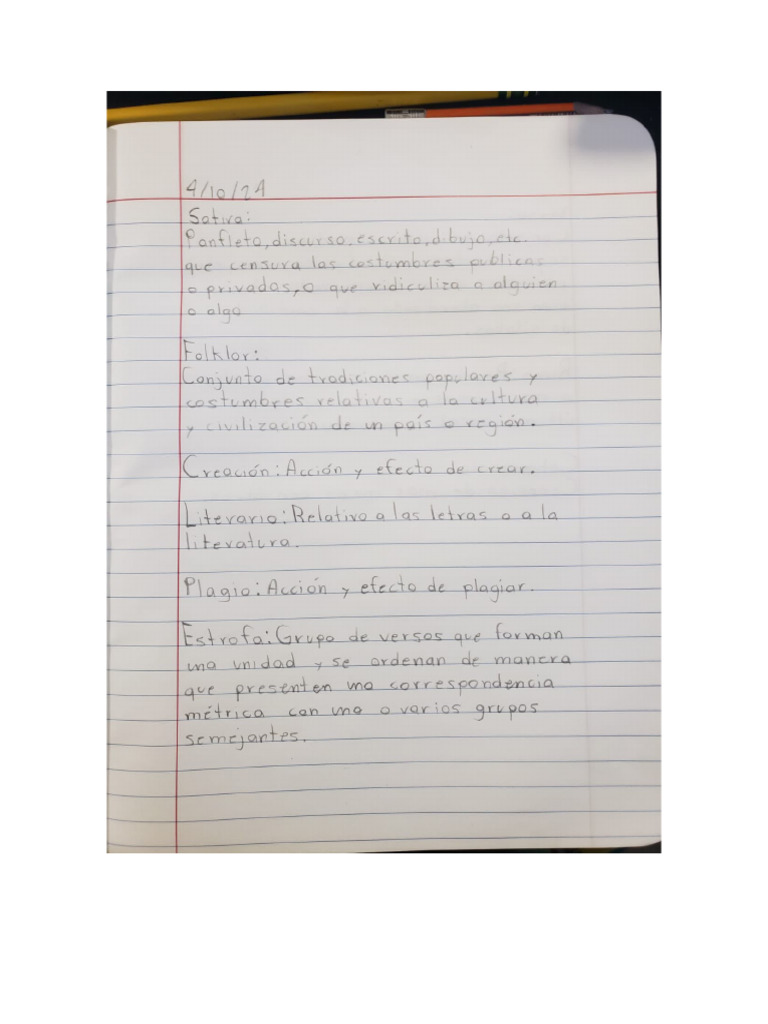 4/10/24
Sátira:
Panfleto, discurso, escrito, dibujo, etc.
que censura las costumbres publicas
o privadas, o que ridiculiza a alguien
o algo
Folklor:
Conjunto de tradiciones populares y
costumbres relativas a la cultura
y civilización de un país o región.
Creación: Acción y efecto de crear.
Literario: Relativo a las letras o a la
literatura.
Plagio: Acción y efecto de plagiar.
Estrofa: Grupo de versos que forman
una unidad y se ordenan de manera
que presenten una correspondencia
métrica con uno o varios grupos
semejantes.